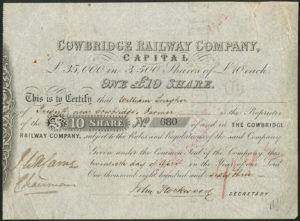 COWBRIDGE RAILWAY COMPANY,
CAPITAL
£35,000 in 3,500 Shares of £10 each
ONE £10 SHARE.
This is to Certify that William
of near Cowbridge, Farmer is the Proprietor
of the £10 SHARE, No 680 of THE COWBRIDGE
RAILWAY COMPANY, subject to the Rules and Regulations of the said Company
Given under the Common Seal of the Company this
day of in the Year of our Lord
One thousand eight hundred and sixty three
Chairman
John Stockwood SECRETARY